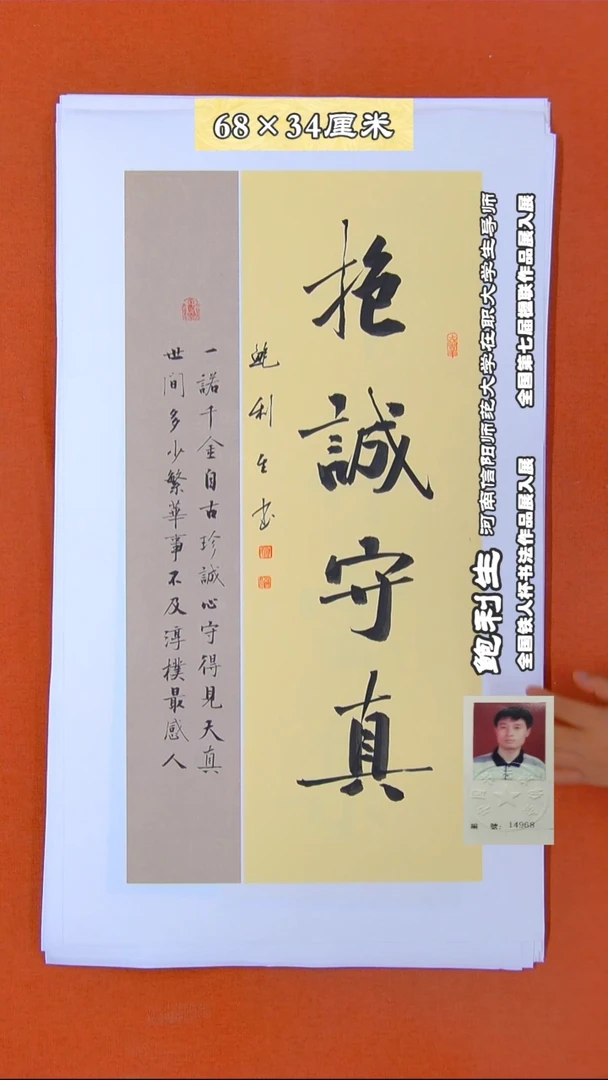 68×34厘米
抱誠守真
鲍利生书
一諾千金自古珍誠心守得見天真
世间多少繁華事不及淳樸最感人
鲍利生 河南信阳师范大学在职大学生导师
全国铁人杯书法作品展入展 全国第七届楹联作品展入展
編 號: 14968